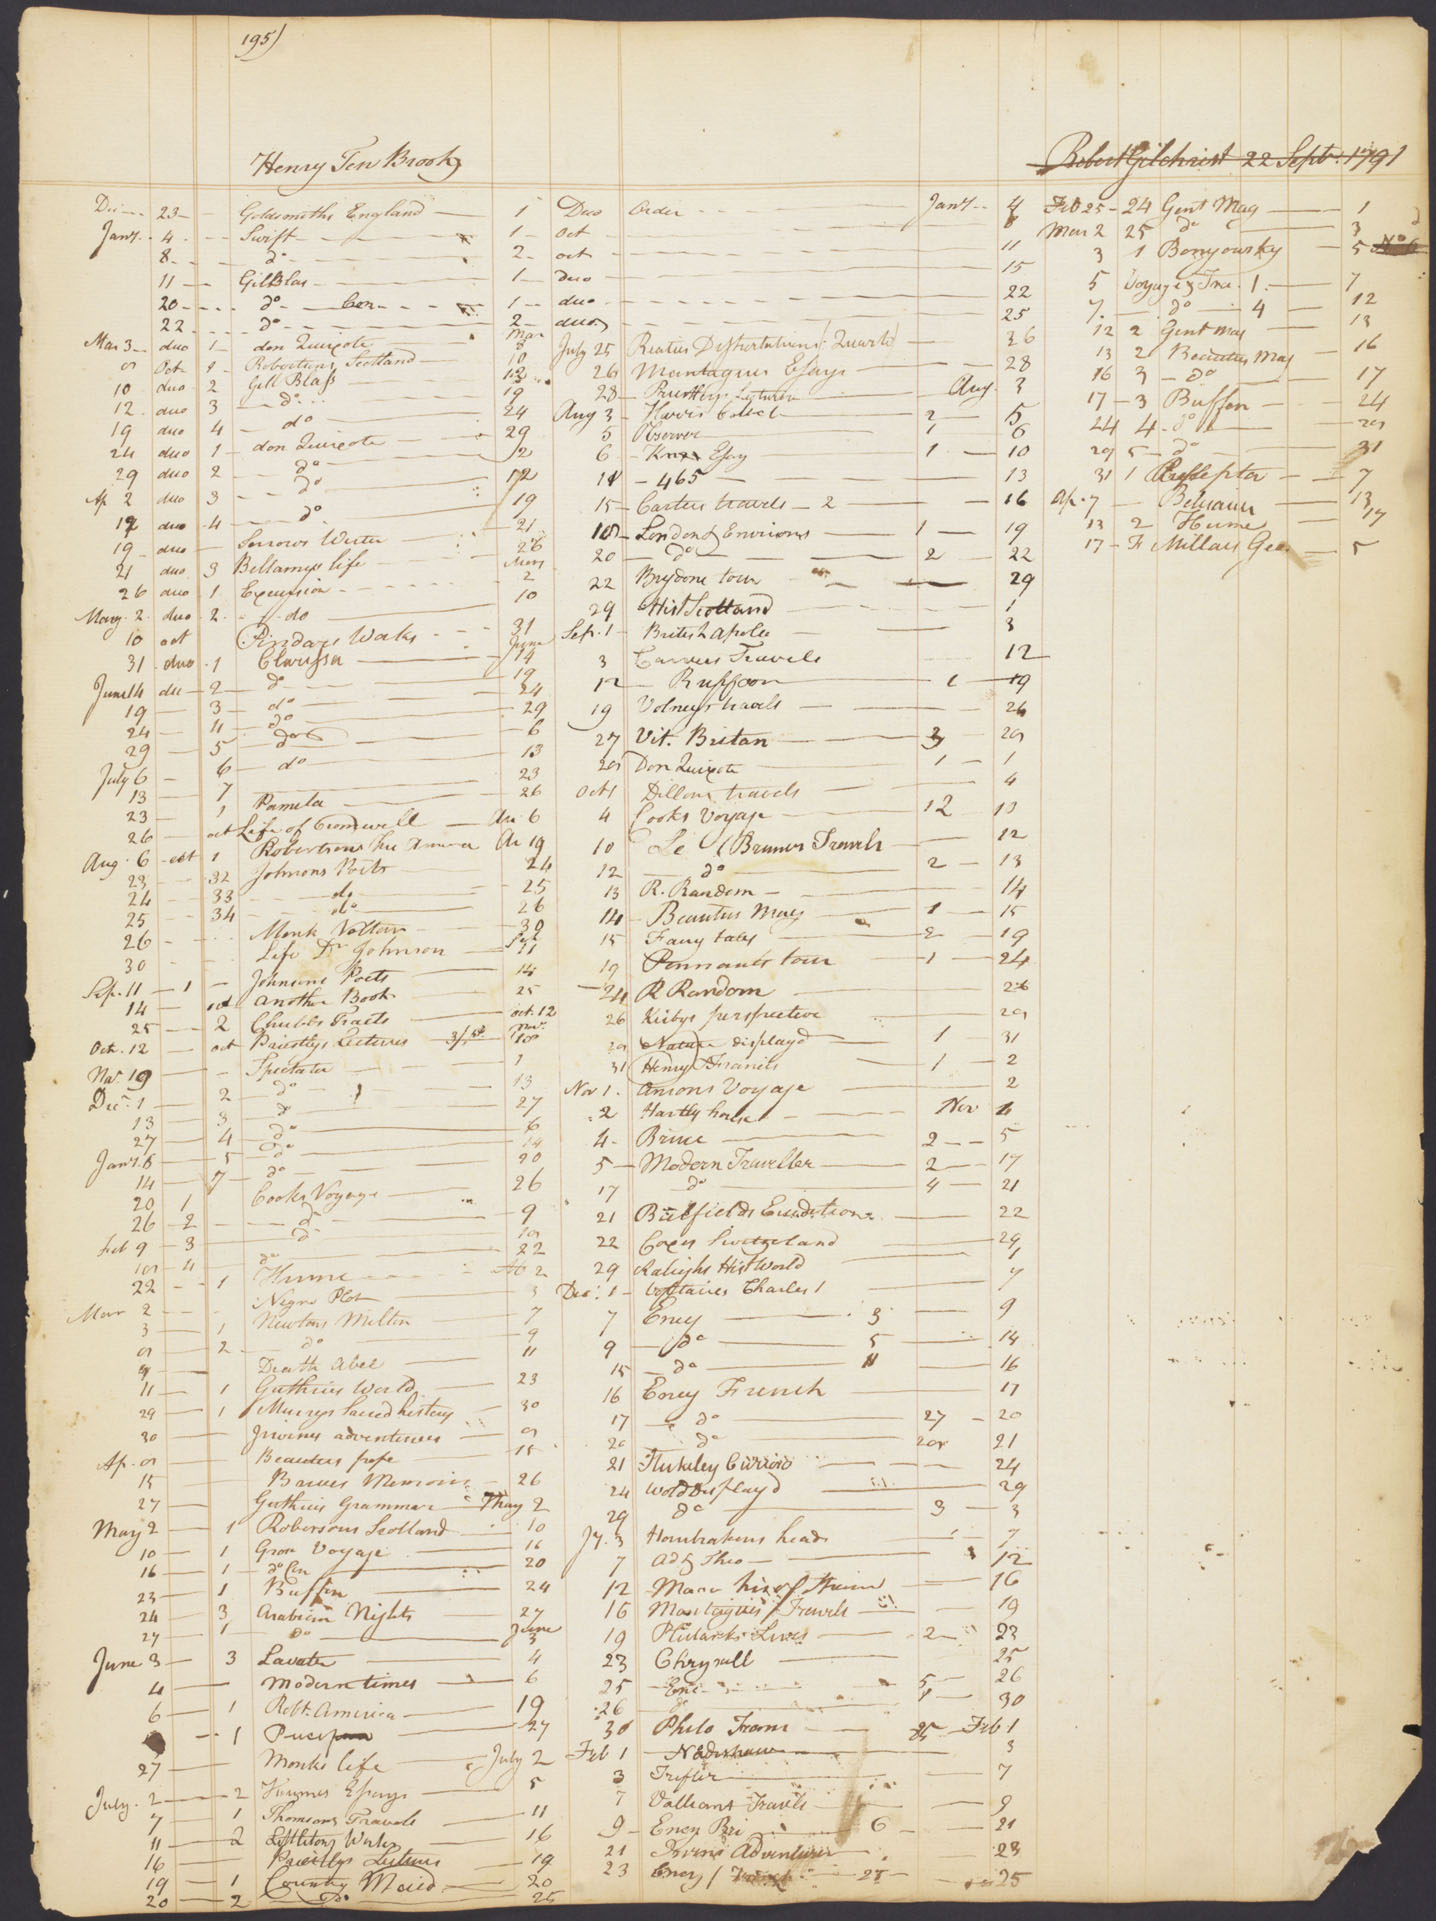 195)
Henry Ten Brook
Robert Gilchrist 22 Septr. 1791
Dec 23 Goldsmiths England 1
Jany. 4 Swift 1
8 do 2
11 Gil Blas 1
20 do 1
22 do 2
Mar 3 duo 1 don Quixote
Oct 1 Robertsons Scotland 10
10 duo 2 Gill Blass 12
12 duo 3 do 19
19 duo 4 do 24
24 duo 1 don Quixote 29
29 duo 2 do
Ap 2 duo 3 do 12
12 duo 4 do 19
19 duo Sorrows Werter 21
21 duo 3 Bellamys life 26
26 duo 1 Excursion 2
May 2 duo 2 do 10
10 oct Pindars Works 31
31 duo 1 Clarissa 14
June 14 duo 2 do 19
19 3 do 24
24 4 do 29
29 5 do 6
July 6 6 do 13
13 7 23
23 1 Pamela 26
26 oct Life of Cromwell 6
Aug 6 oct 1 Robertsons America 19
23 32 Johnsons Poets 24
24 33 do 25
25 34 do 26
26 Monk 30
30 Life Dr Johnson 11
Sep. 11 1 Johnsons Poets 14
14 another Book 25
25 2 Chubbs Tracts Oct. 12
Oct. 12 oct Priestlys Lectures
Nov. 19 Spectator 1
Dec. 1 2 do 13
13 3 do 27
27 4 do 6
Jany. 6 5 do 14
14 7 do 20
20 1 Cooks Voyage 26
26 2 do 9
Feb 9 3 do
4 do 22
22 1 Hume 2
Mar 2 Negro Plot 3
3 1 Newtons Milton 7
2 do 9
9 Death Abel 11
11 1 Guthries World 23
29 1 Murrys Sacred history 30
30 Irwins adventures
Ap. Beauties pope 15
15 Memoirs 26
27 Guthries Grammar May 2
May 2 1 Robersons Scotland 10
10 1 Voyage 16
16 1 do 20
23 1 Buffon 24
24 3 Arabian Nights 27
27 1 do June 3
June 3 3 Lavater 4
4 Modern times 6
6 1 Robt. America 19
1 27
27 Monks life July 2
July 2 2 Humes Essays 5
7 1 Thomsons Travels 11
11 2 Littletons Works 16
16 Priestlys Lectures 19
19 1 Country Maid 20
20 2 do 25
Duo Order Jany 4
oct 8
oct 11
duo 15
duo 22
duo 25
July 25 Beaties Dissertations Quarto 26
26 Montagues Essays 28
28 Priestleys Lectures Aug. 3
Aug 3 Harris Collect 2 5
5 Observer 1 6
6 Knox Essay 1 10
11 465 13
15 Carters travels 2 16
18 London & Environs 1 19
20 do 2 22
22 Brydone tour 29
29 Hist Scotland 1
Sep. 1 British Apollo 3
3 Carvers Travels 12
12 Buffoon 1 19
19 Volneys travels 26
27 Vit. Britan 3 29
29 Don Quixote 1 1
Oct 1 Dillons travels 4
4 Cooks Voyage 12 10
10 Le Brunes Travels 12
12 do 2 13
13 R. Random 14
14 Beauties Mag 1 15
15 Fairy tales 2 19
19 Pennants tour 1 24
24 R Random 26
26 Kirbys perspective 29
29 Nature displayd 1 31
31 Henry & Francis 1 2
Nov 1 Ansons Voyage 2
2 Hartly house Nov 4
4 Bruce 2 5
5 Modern Traveller 2 17
17 do 4 21
21 22
22 Coxes Switzerland 29
29 Raleighs Hist World 1
Dec. 1 Voltaires Charles 1 7
7 Ency 3 9
9 do 5 14
15 do 11 16
16 Ency French 17
17 do 27 20
20 do 21
21 24
24 World displayd 29
29 do 3 3
Jy. 3 Houbrakens heads 7
7 Ad & Theo 12
12 16
16 Montagues Travels 19
19 Plutarks Lives 2 23
23 Chrysall 25
25 Enc 5 26
26 do 30
30 Philo Trans 25 Feb 1
Feb 1 3
3 Trifler 7
7 Valliants Travels 9
9 Ency Bri 6 21
21 Irvins Adventures 23
23 Ency French 28 25
Feb 25 24 Gent Mag 1
Mar 2 25 do 3
3 1 Benyousky 5 No 6
5 Voyage & Tra. 1 7
7 do 4 12
12 2 Gent Mag 13
13 2 Beauties Mag 16
16 3 do 17
17 3 Buffon 24
24 4 do 29
29 5 do 31
31 1 Preseptor 7
Ap. 7 13
13 2 Hume 17
17 Millars Geo. 5